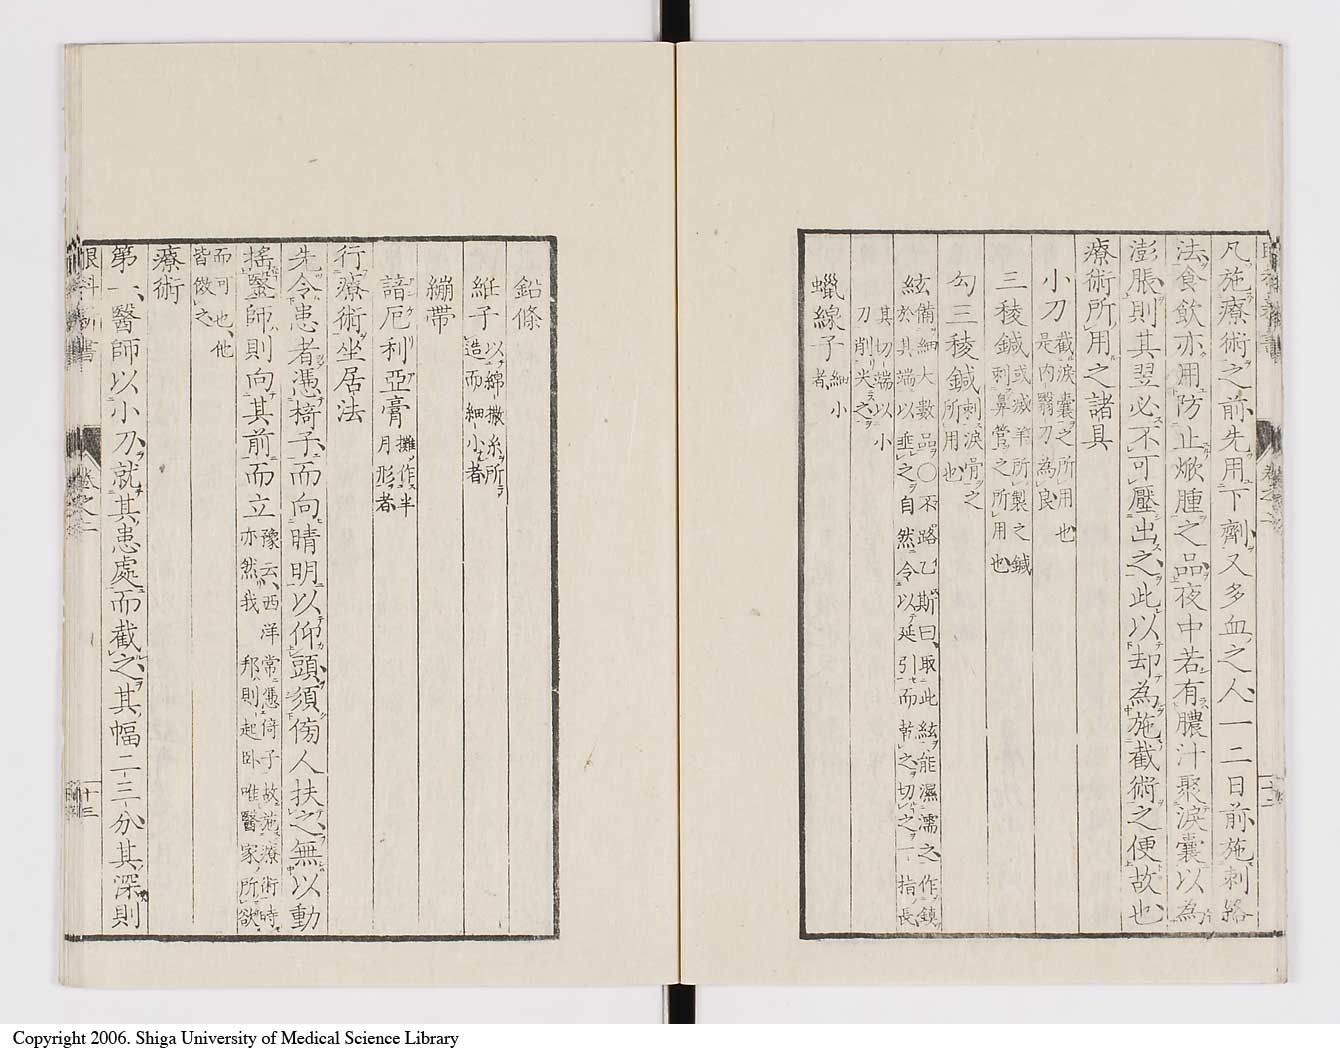 凡施療術之前先用下劑又多血之人一二日前施刺絡
法食飲亦用防止焮腫之品夜中若有膿汁聚淚囊以為
澎脹則其翌必不可壓出之此以却為施截術之便故也
療術所用之諸具
小刀 截淚囊之所用也
是內翳刀為良
三稜鍼 或減羊所製之鍼
刺鼻管之所用也
勾三稜鍼 刺淚骨之
所用也
絃 備細大數品〇不路乙斯曰取此絃能濕濡之作鎮
於其端以垂之自然令以延引而乾之切之一指長
其切端以小
刀削尖之
蠟線子 細小
者
眼科 書
卷之二
十二
鉛條
絍子 以綿撒糸所
造而細小者
繃帶
諳厄利亞膏 攤作半
月形者
行療術坐居法
先令患者憑椅子而向晴明以仰頭須傍人扶之無以動
搖醫師則向其前而立 豫云西洋常憑倚子故施療術時
亦然我邦則起卧唯醫家所欲
而可也他
皆傚之
療術
第一醫師以小刀就其患處而截之其幅二三分其深則
眼科 書
卷之二
十三
Copyright 2006. Shiga University of Medical Science Library